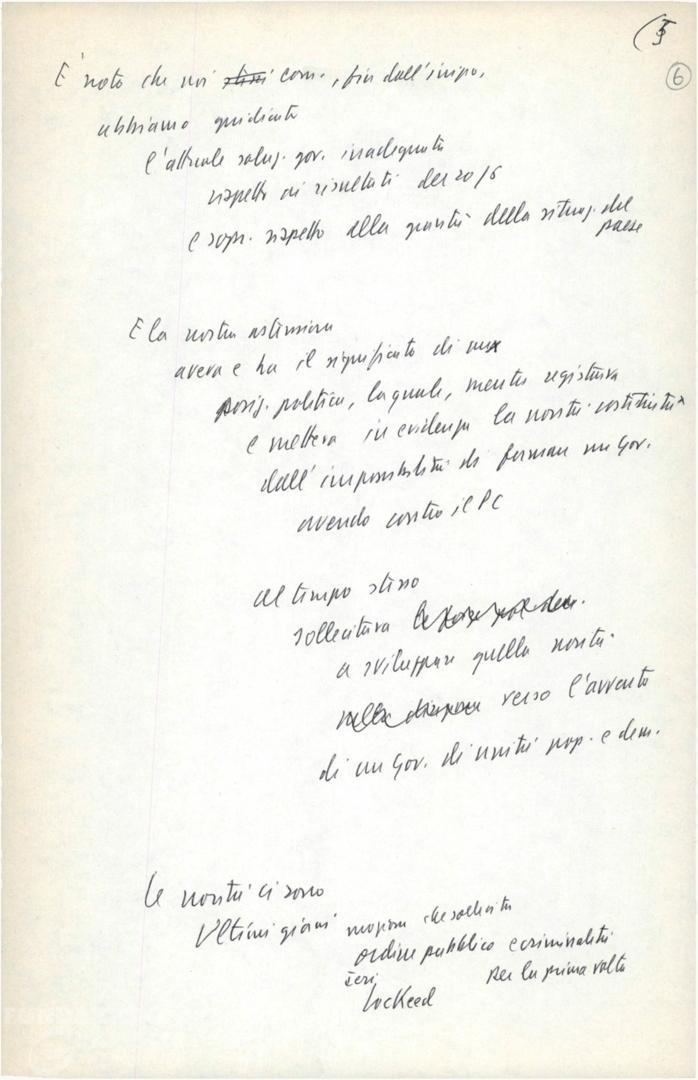 (5
6
E' noto che noi com., fin dall'inizio,
abbiamo giudicato
l'attuale soluz. gov. inadeguata
rispetto ai risultati del 20/6
e sopr. rispetto alla gravità della situaz. del
paese
E la nostra astensione
aveva e ha il significato di una
posiz. politica, la quale, mentre registrava
e metteva in evidenza la novità costituita
dall'impossibilità di formare un Gov.
avendo contro il PC
al tempo stesso
sollecitava le forze pol. dem.
a sviluppare quella novità
nella direzione verso l'avvento
di un Gov. di unità pop. e dem.
Le novità ci sono
Ultimi giorni mozione che sollecita
ordine pubblico e criminalità
ieri per la prima volta
Lockeed